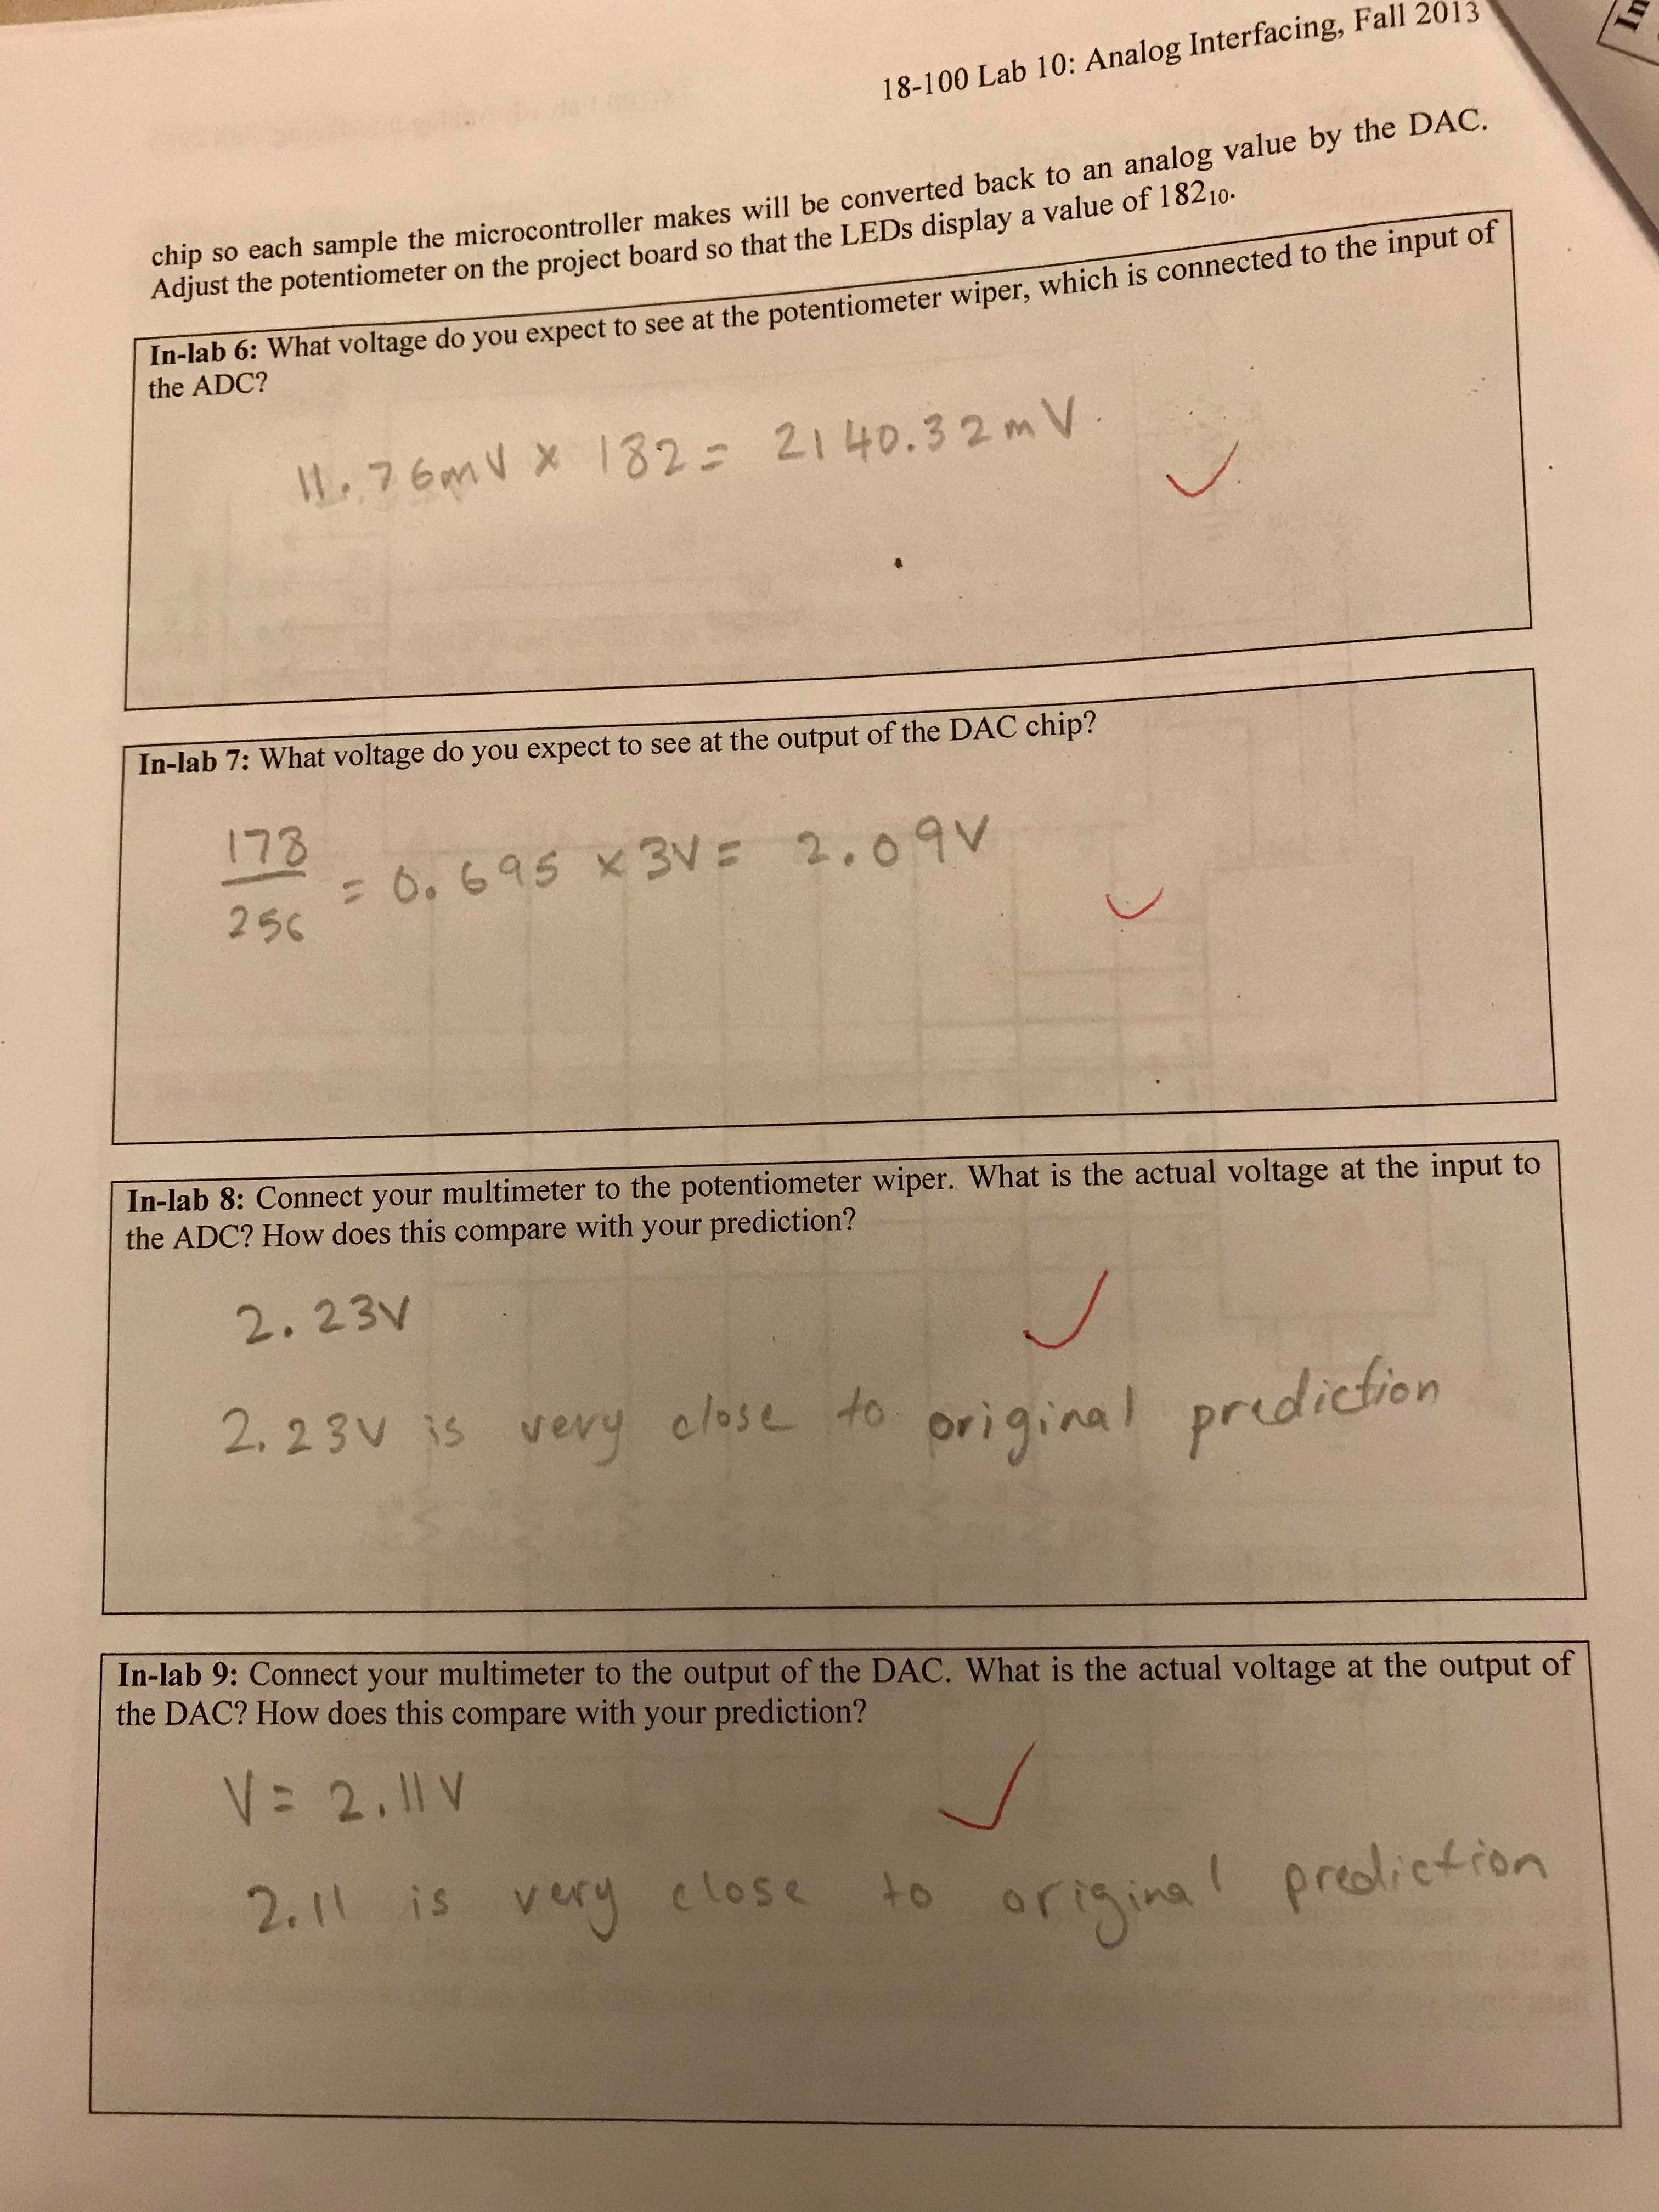 In
18-100 Lab 10: Analog Interfacing, Fall 2013
chip so each sample the microcontroller makes will be converted back to an analog value by the DAC.
Adjust the potentiometer on the project board so that the LEDs display a value of 182₁₀.
In-lab 6: What voltage do you expect to see at the potentiometer wiper, which is connected to the input of
the ADC?
11.76mV x 182 = 2140.32mV.
In-lab 7: What voltage do you expect to see at the output of the DAC chip?
178
256
= 0.695 x 3V = 2.09V
In-lab 8: Connect your multimeter to the potentiometer wiper. What is the actual voltage at the input to
the ADC? How does this compare with your prediction?
2.23V
2.23V is very close to original prediction
In-lab 9: Connect your multimeter to the output of the DAC. What is the actual voltage at the output of
the DAC? How does this compare with your prediction?
V = 2.11V
2.11 is very close to original prediction